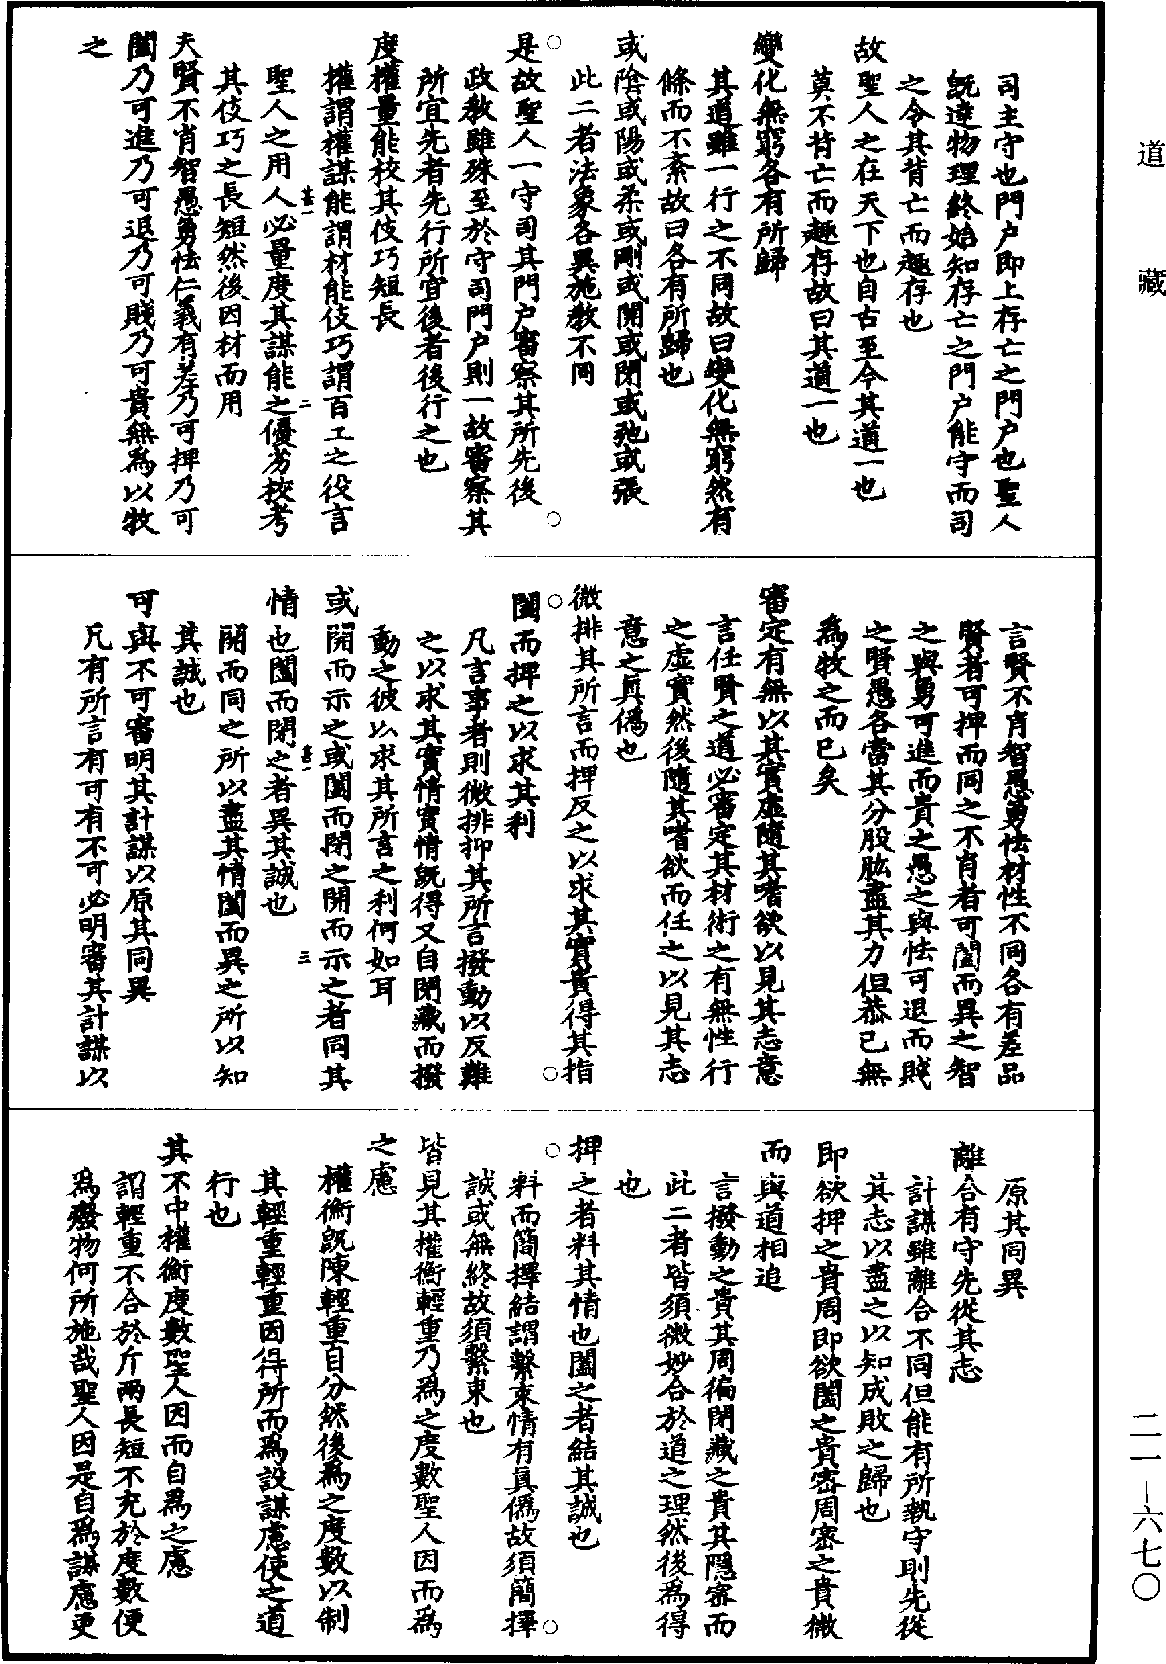 道藏
司主守也門戶即上存亡之門戶也聖人
既達物理終始知存亡之門戶能守而司
之令其背亡而趣存也
故聖人之在天下也自古至今其道一也
莫不背亡而趣存故曰其道一也
變化無窮各有所歸
其道雖一行之不同故曰變化無窮然有
條而不紊故曰各有所歸也
或陰或陽或柔或剛或開或閉或弛或張
此二者法象各異施教不同
是故聖人一守司其門戶審察其所先後
政教雖殊至於守司門戶則一故審察其
所宜先者先行所宜後者後行之也
度權量能校其伎巧短長
權謂權謀能謂材能伎巧謂百工之役言
聖人之用人必量度其謀能之優劣校考
其伎巧之長短然後因材而用
夫賢不肖智愚勇怯仁義有差乃可捭乃可
闔乃可進乃可退乃可賤乃可貴無為以牧
之
言賢不肖智愚勇怯材性不同各有差品
賢者可捭而同之不肖者可闔而異之智
之與勇可進而貴之愚之與怯可退而賤
之賢愚各當其分股肱盡其力但恭己無
為牧之而已矣
審定有無以其實虛隨其嗜欲以見其志意
言任賢之道必審定其材術之有無性行
之虛實然後隨其嗜欲而任之以見其志
意之真偽也
微排其所言而捭反之以求其實貴得其指
闔而捭之以求其利
凡言事者則微排抑其所言撥動以反難
之以求其實情實情既得又自閉藏而撥
動之彼以求其所言之利何如耳
或開而示之或闔而閉之開而示之者同其
情也闔而閉之者異其誠也
開而同之所以盡其情闔而異之所以知
其誠也
可與不可審明其計謀以原其同異
凡有所言有可有不可必明審其計謀以
原其同異
離合有守先從其志
計謀雖離合不同但能有所執守則先從
其志以盡之以知成敗之歸也
即欲捭之貴周即欲闔之貴密周密之貴微
而與道相追
言撥動之貴其周徧閉藏之貴其隱密而
此二者皆須微妙合於道之理然後為得
也
捭之者料其情也闔之者結其誠也
料而簡擇結謂繫束情有真偽故須簡擇
誠或無終故須繫束也
皆見其權衡輕重乃為之度數聖人因而為
之慮
權衡既陳輕重自分然後為之度數以制
其輕重輕重因得所而為設謀慮使之道
行也
其不中權衡度數聖人因而自為之慮
謂輕重不合於斤兩長短不充於度數便
為廢物何所施哉聖人因是自為謀慮更
二一－六七〇